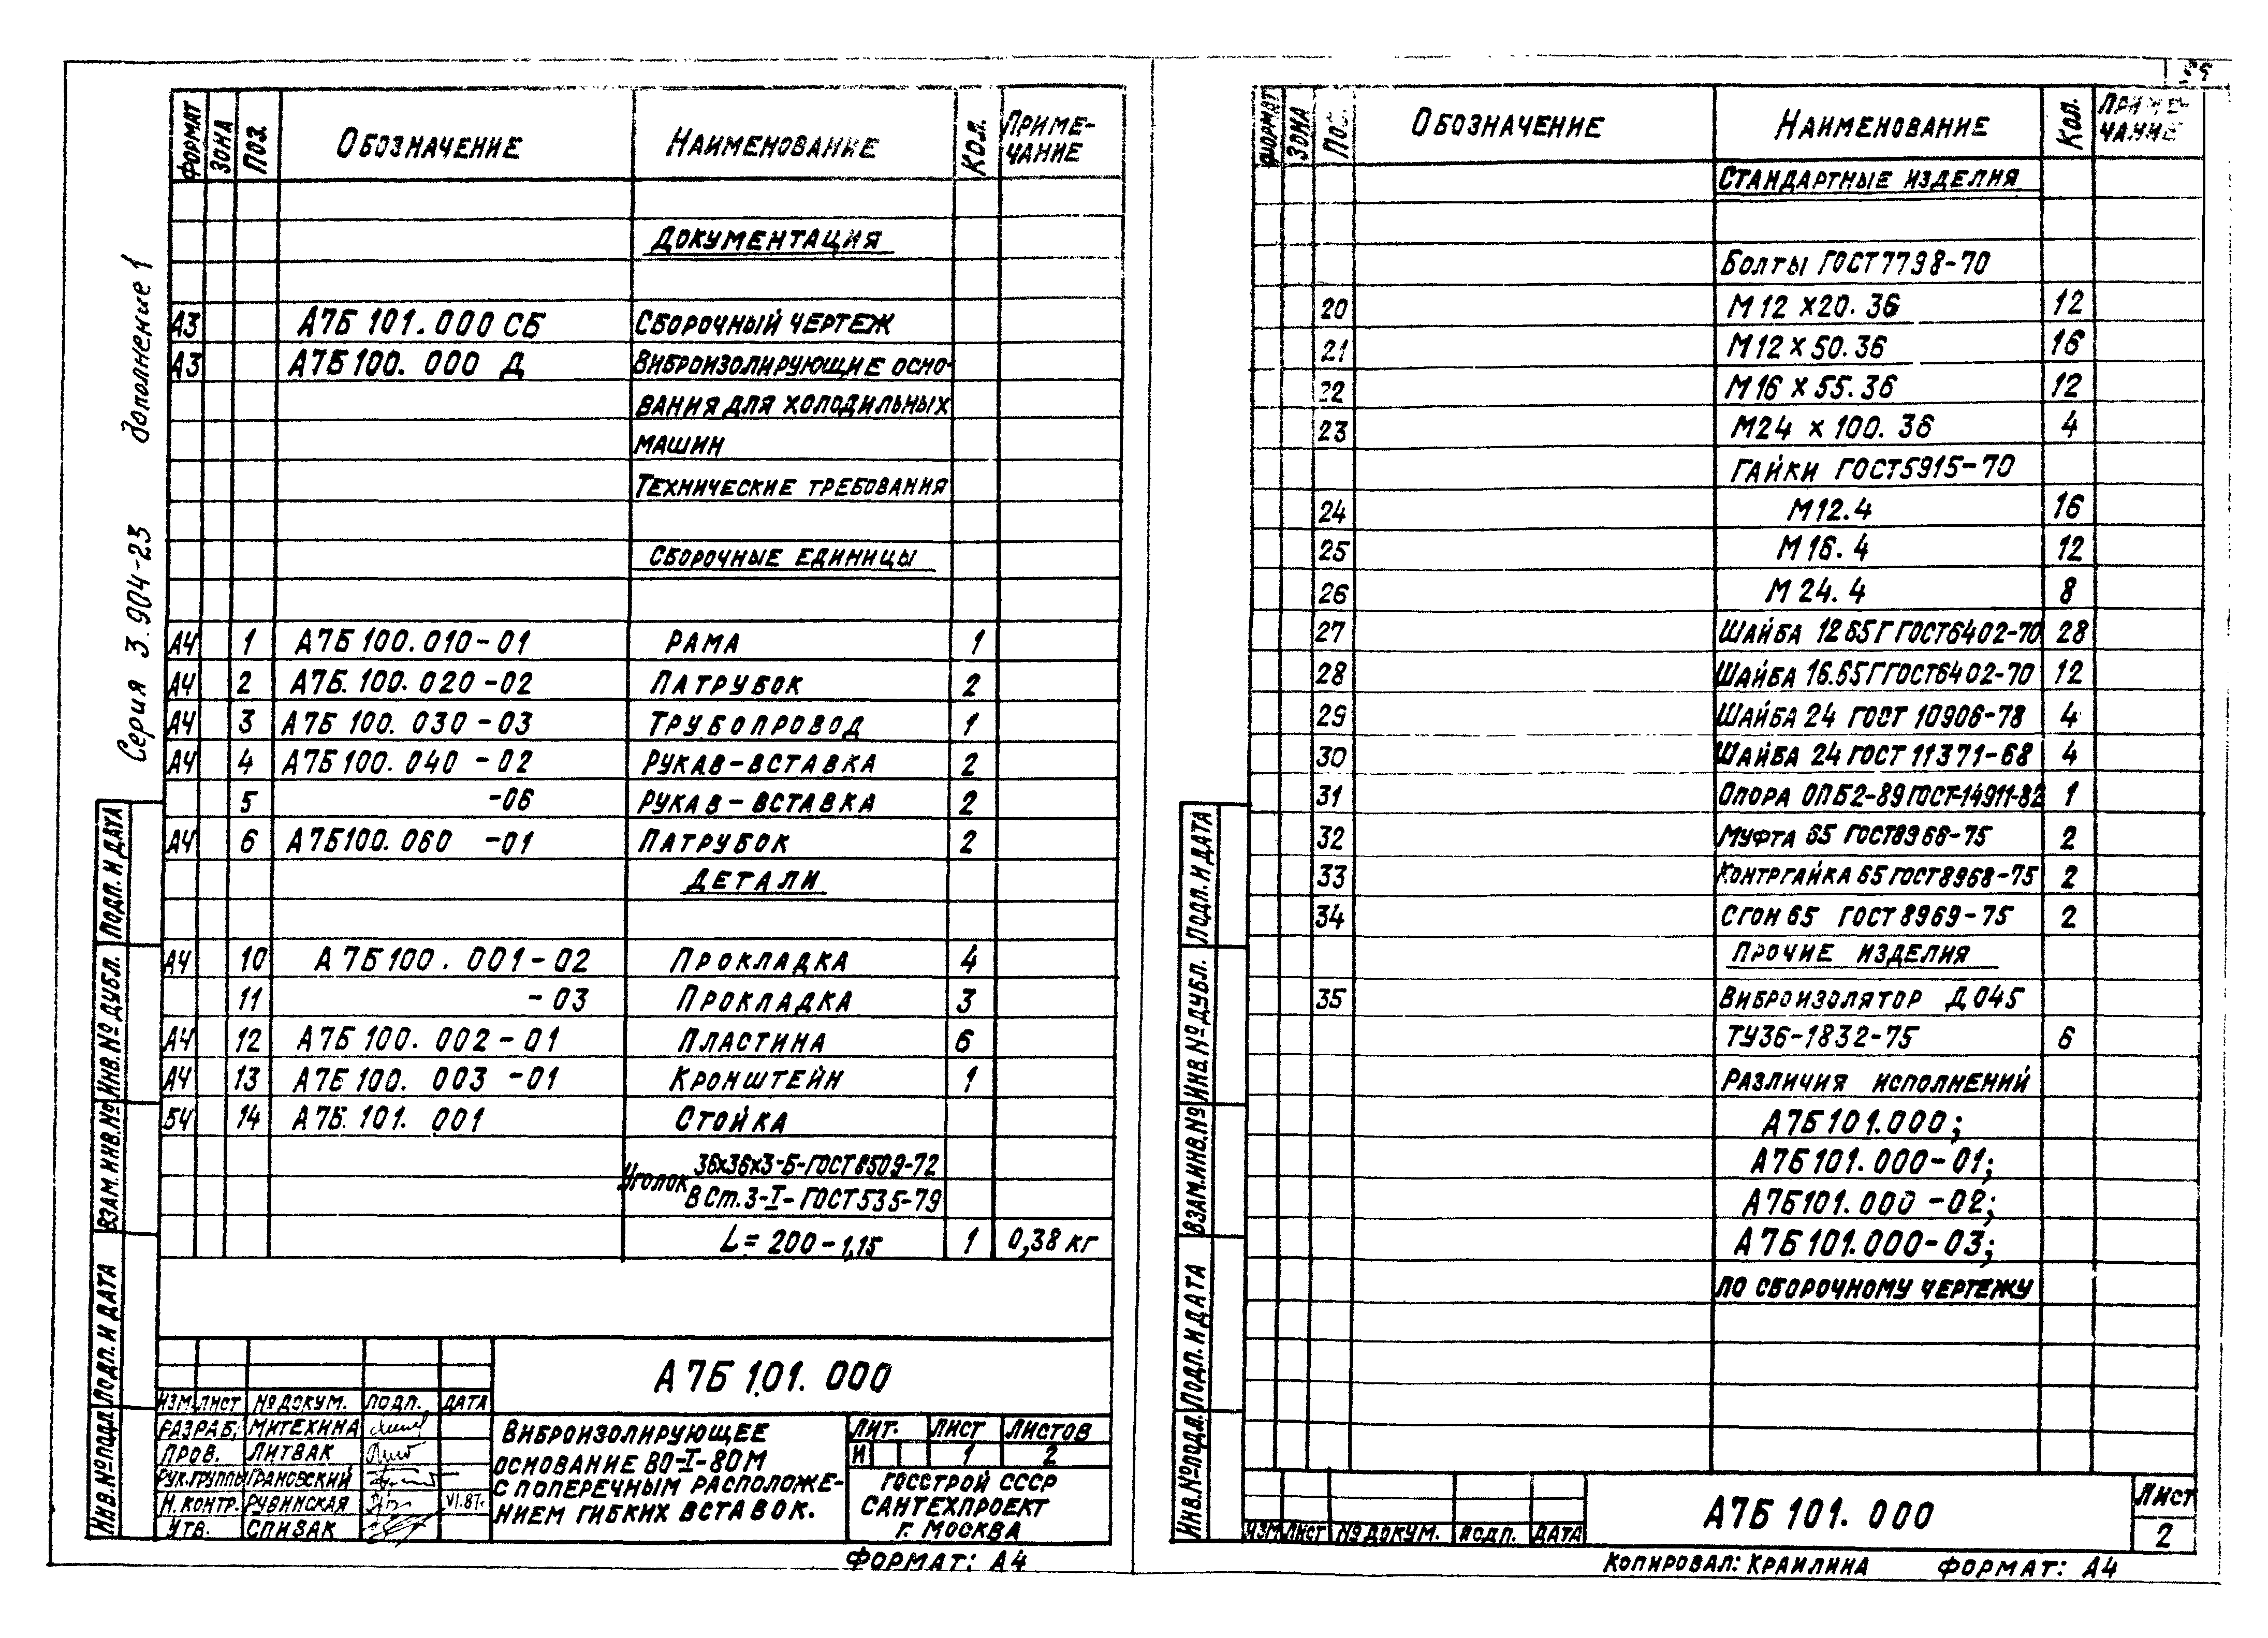 Серия 3.904-23 дополнение 1
ФОРМАТ ЗОНА ПОЗ. ОБОЗНАЧЕНИЕ НАИМЕНОВАНИЕ КОЛ. ПРИМЕ-
ЧАНИЕ
ДОКУМЕНТАЦИЯ
А3 А7Б 101.000 СБ СБОРОЧНЫЙ ЧЕРТЕЖ
А3 А7Б 100.000 Д ВИБРОИЗОЛИРУЮЩИЕ ОСНО-
ВАНИЯ ДЛЯ ХОЛОДИЛЬНЫХ
МАШИН
ТЕХНИЧЕСКИЕ ТРЕБОВАНИЯ
СБОРОЧНЫЕ ЕДИНИЦЫ
А4 1 А7Б 100.010-01 РАМА 1
А4 2 А7Б.100.020-02 ПАТРУБОК 2
А4 3 А7Б 100.030-03 ТРУБОПРОВОД 1
А4 4 А7Б 100.040-02 РУКАВ-ВСТАВКА 2
5 -06 РУКАВ-ВСТАВКА 2
А4 6 А7Б100.060 -01 ПАТРУБОК 2
ДЕТАЛИ
А4 10 А7Б100.001-02 ПРОКЛАДКА 4
11 -03 ПРОКЛАДКА 3
А4 12 А7Б 100.002-01 ПЛАСТИНА 6
А4 13 А7Б 100.003-01 КРОНШТЕЙН 1
БЧ 14 А7Б.101.001 СТОЙКА
УГОЛОК 36х36х3-Б-ГОСТ 8509-72
В Ст.3-I-ГОСТ 535-79
L=200-1,15 1 0,38 кг
А7Б 101.000
ИЗМ. ЛИСТ № ДОКУМ. ПОДП. ДАТА
РАЗРАБ. МИТЕХИНА
ПРОВ. ЛИТВАК
РУК.ГРУППЫ ГРАНОВСКИЙ
Н. КОНТР. РУБИНСКАЯ VI.87г.
УТВ. СПИВАК
ВИБРОИЗОЛИРУЮЩЕЕ
ОСНОВАНИЕ ВО-I-80М
С ПОПЕРЕЧНЫМ РАСПОЛОЖЕ-
НИЕМ ГИБКИХ ВСТАВОК.
ЛИТ. ЛИСТ ЛИСТОВ
И 1 2
ГОССТРОЙ СССР
САНТЕХПРОЕКТ
Г. МОСКВА
ФОРМАТ: А4
ИНВ.№ПОДЛ. ПОДП. И ДАТА ВЗАМ.ИНВ.№ ИНВ.№ДУБЛ. ПОДП. И ДАТА
ФОРМАТ ЗОНА ПОЗ. ОБОЗНАЧЕНИЕ НАИМЕНОВАНИЕ КОЛ. ПРИМЕ-
ЧАНИЕ
СТАНДАРТНЫЕ ИЗДЕЛИЯ
БОЛТЫ ГОСТ 7798-70
20 М12 х20.36 12
21 М12 х 50.36 16
22 М16 х 55.36 12
23 М24 х 100.36 4
ГАЙКИ ГОСТ5915-70
24 М12.4 16
25 М16.4 12
26 М24.4 8
27 ШАЙБА 12 65Г ГОСТ6402-70 28
28 ШАЙБА 16.65Г ГОСТ6402-70 12
29 ШАЙБА 24 ГОСТ 10906-78 4
30 ШАЙБА 24 ГОСТ 11371-68 4
31 ОПОРА ОПБ2-89 ГОСТ-14911-82 1
32 МУФТА 65 ГОСТ8966-75 2
33 КОНТРГАЙКА 65 ГОСТ8968-75 2
34 СГОН 65 ГОСТ 8969-75 2
ПРОЧИЕ ИЗДЕЛИЯ
35 ВИБРОИЗОЛЯТОР ДО45
ТУ36-1832-75 6
РАЗЛИЧИЯ ИСПОЛНЕНИЙ
А7Б101.000;
А7Б101.000-01;
А7Б101.000-02;
А7Б101.000-03;
ПО СБОРОЧНОМУ ЧЕРТЕЖУ
ИЗМ ЛИСТ № ДОКУМ. ПОДП. ДАТА
А7Б 101.000
ЛИСТ
2
КОПИРОВАЛ: КРАИЛИНА ФОРМАТ: А4
ИНВ.№ПОДЛ. ПОДП. И ДАТА ВЗАМ.ИНВ.№ ИНВ.№ДУБЛ. ПОДП. И ДАТА